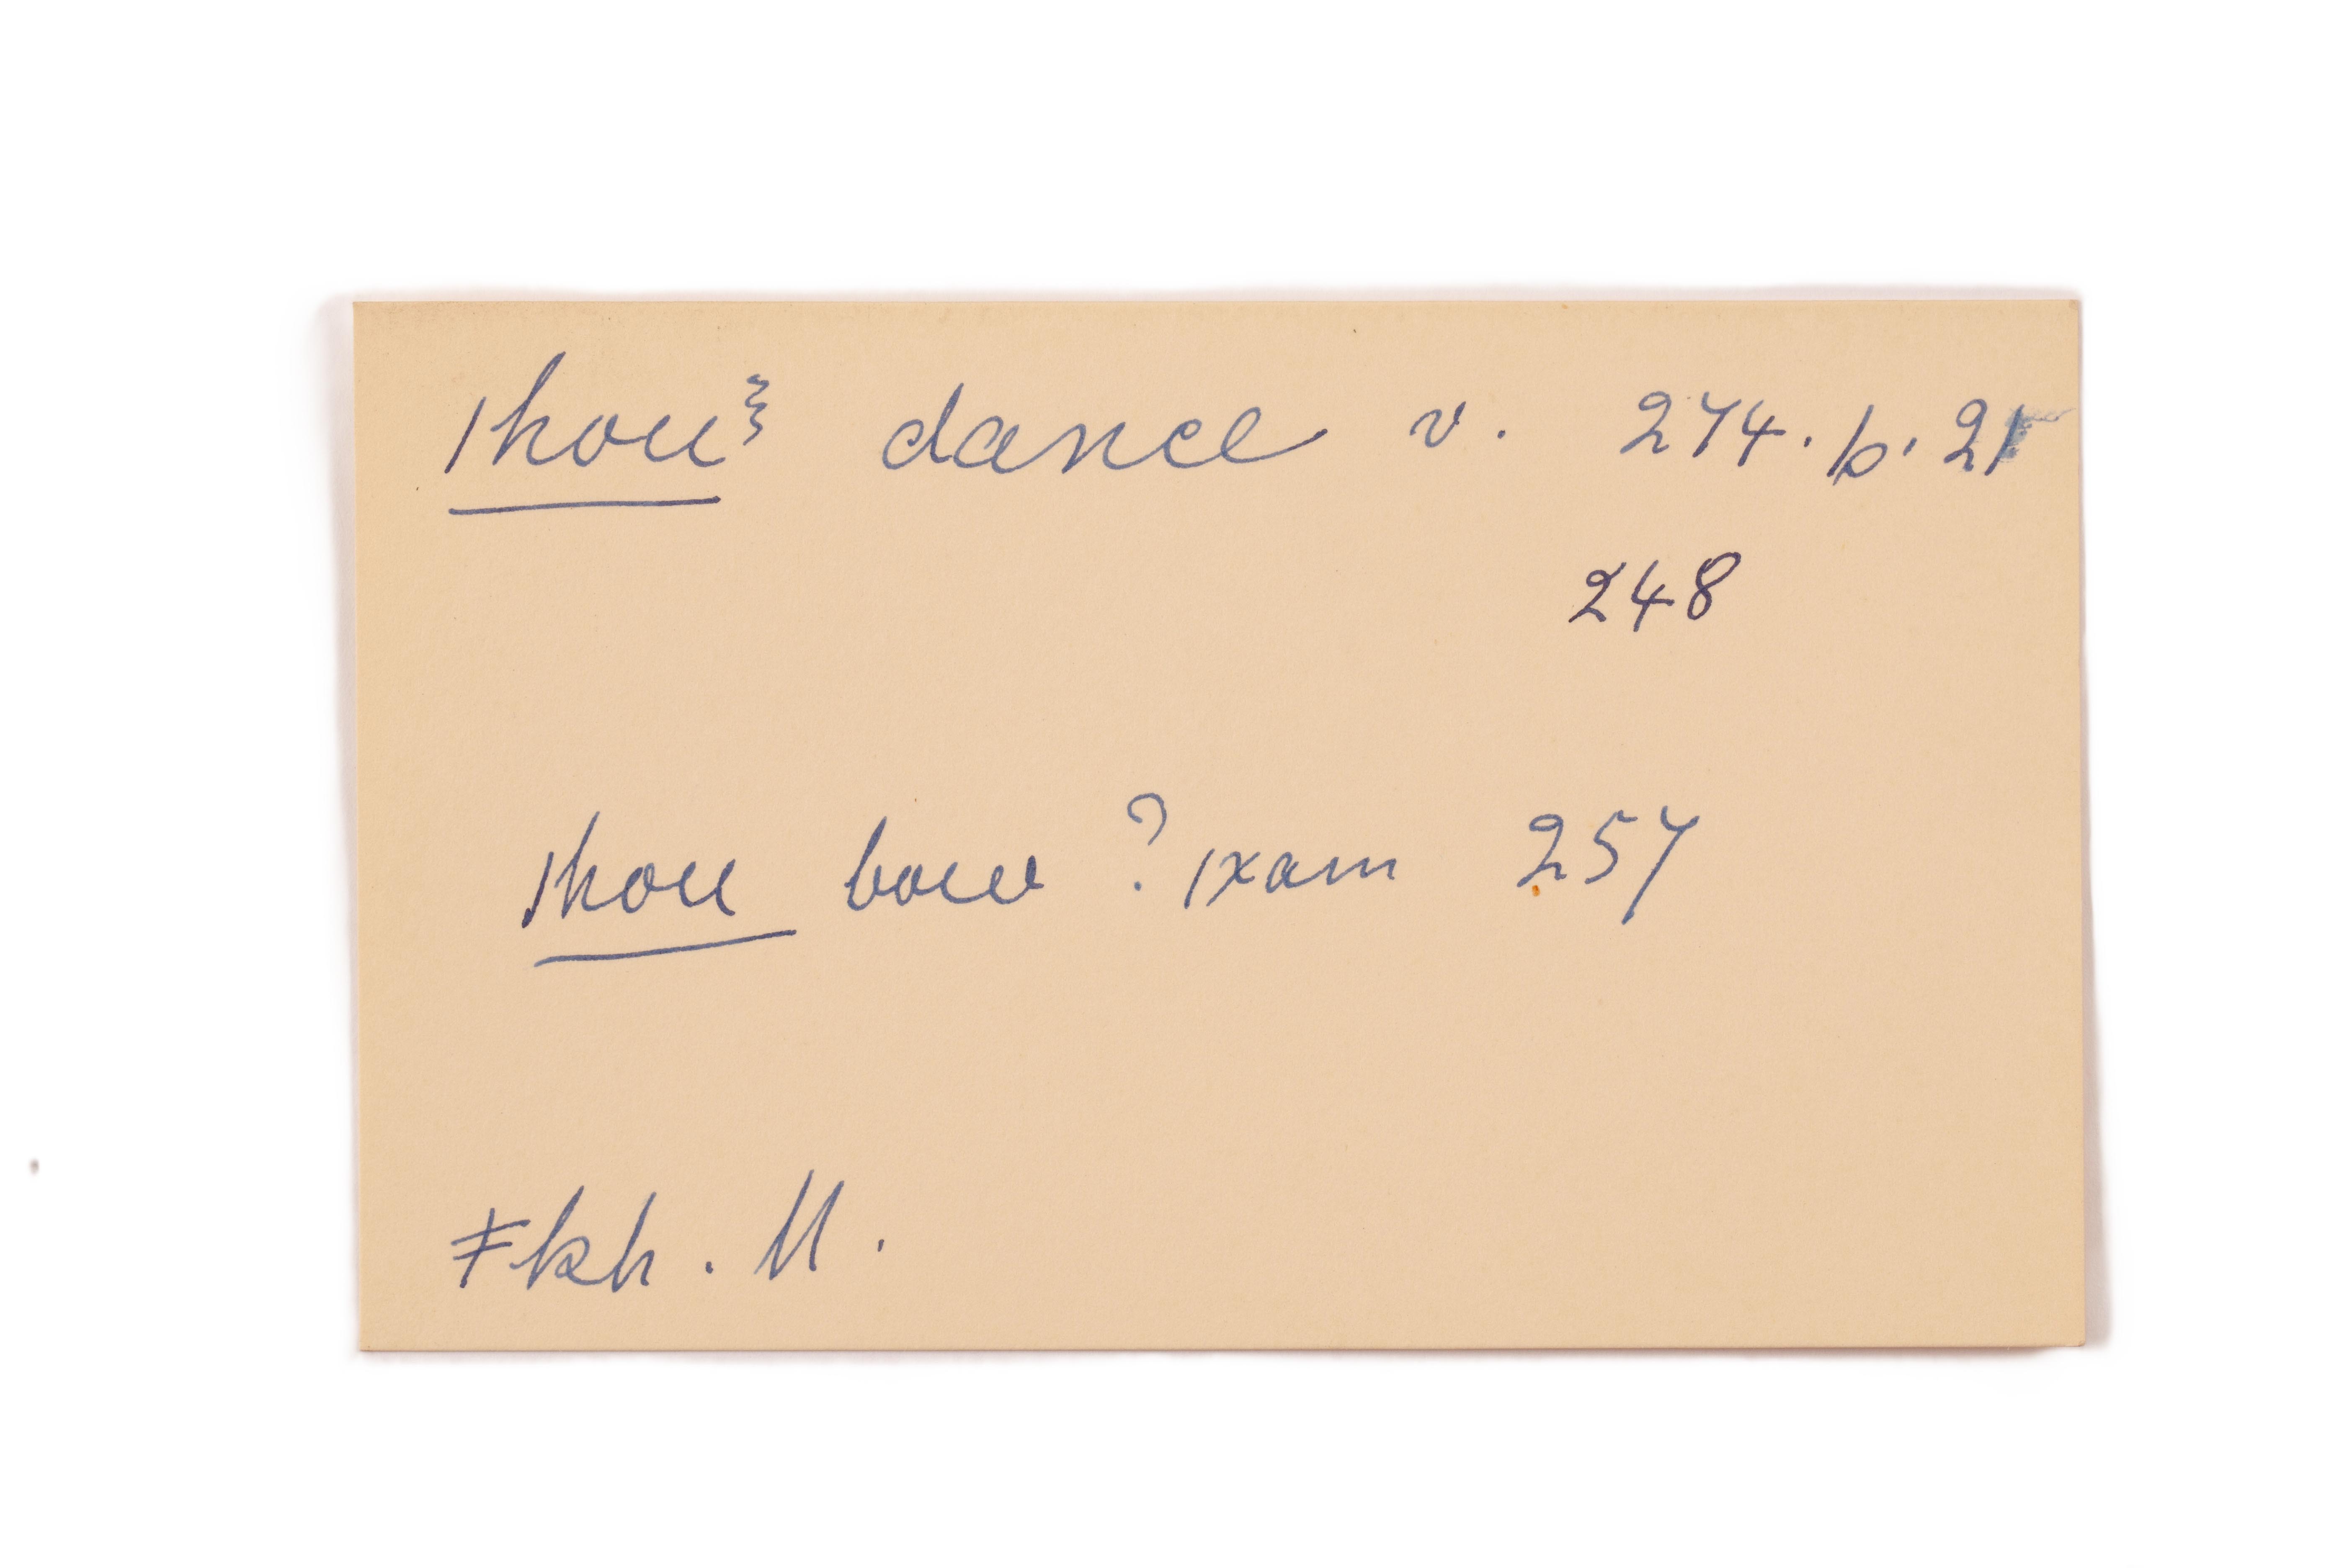 ǀhouꜫ dance v. 274. p. 21
248
ǀhou bow ? ǀxam 257
ǂkh. ǁ.